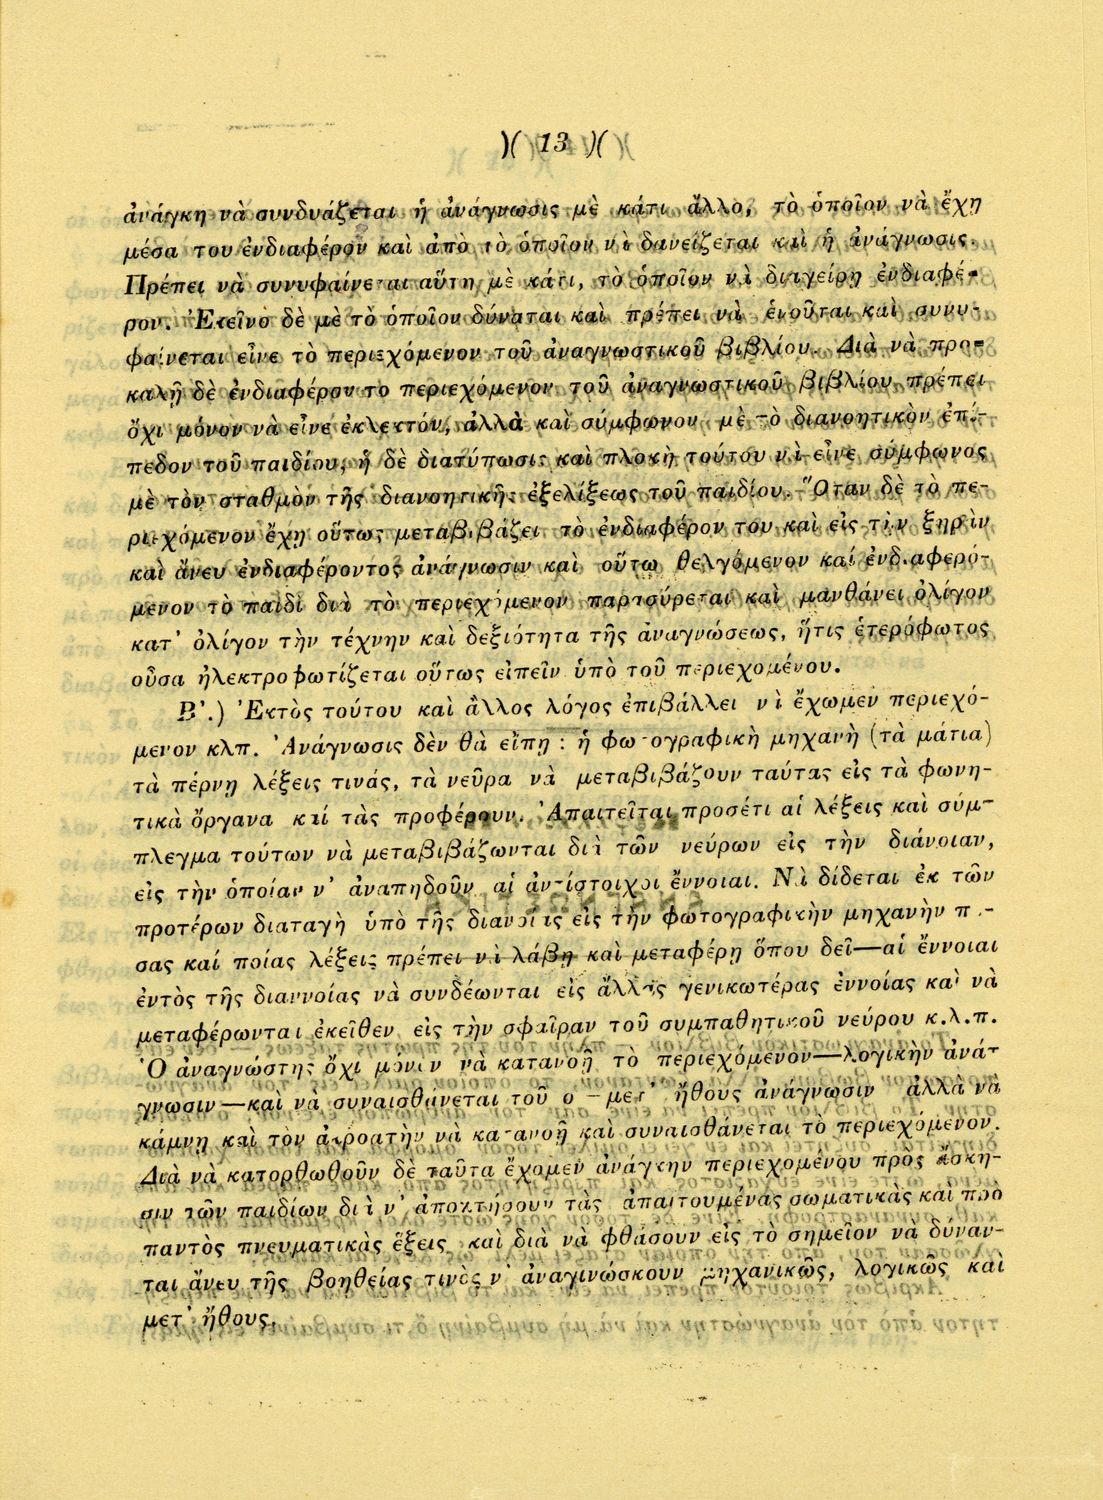 )( 13 )(
ἀνάγκη νὰ συνδυάζεται ἡ ἀνάγνωσις μὲ κάτι ἄλλο, τὸ ὁποῖον νὰ ἔχῃ
μέσα του ἐνδιαφέρον καὶ ἀπὸ τὸ ὁποῖον νὰ δανείζεται καὶ ἡ ἀνάγνωσις.
Πρέπει νὰ συνυφαίνεται αὕτη μὲ κάτι, τὸ ὁποῖον νὰ διεγείρῃ ἐνδιαφέ-
ρον. Ἐκεῖνο δὲ μὲ τὸ ὁποῖον δύναται καὶ πρέπει νὰ ἑνοῦται καὶ συνυ-
φαίνεται εἶνε τὸ περιεχόμενον τοῦ ἀναγνωστικοῦ βιβλίου. Διὰ νὰ προ-
καλῇ δὲ ἐνδιαφέρον τὸ περιεχόμενον τοῦ ἀναγνωστικοῦ βιβλίου πρέπει
ὄχι μόνον νὰ εἶνε ἐκλεκτόν, ἀλλὰ καὶ σύμφωνον μὲ τὸ διανοητικὸν ἐπί-
πεδον τοῦ παιδίου, ἡ δὲ διατύπωσις καὶ πλοκὴ τούτου νὰ εἶνε σύμφωνος
μὲ τὸν σταθμὸν τῆς διανοητικῆς ἐξελίξεως τοῦ παιδίου. Ὅταν δὲ τὸ πε-
ριεχόμενον ἔχῃ οὕτως μεταβιβάζει τὸ ἐνδιαφέρον του καὶ εἰς τὴν ξηρὰν
καὶ ἄνευ ἐνδιαφέροντος ἀνάγνωσιν καὶ οὕτω θελγόμενον καί ἐνδιαφερό-
μενον τὸ παιδὶ διὰ τὸ περιεχόμενον παρασύρεται καὶ μανθάνει ὀλίγον
κατ' ὀλίγον τὴν τέχνην καὶ δεξιότητα τῆς ἀναγνώσεως, ἥτις ἑτερόφωτος
οὖσα ἠλεκτροφωτίζεται οὕτως εἰπεῖν ὑπὸ τοῦ περιεχομένου.
Β'.) Ἐκτὸς τούτου καὶ ἄλλος λόγος ἐπιβάλλει νὰ ἔχωμεν περιεχό-
μενον κλπ. Ἀνάγνωσις δὲν θὰ εἴπῃ : ἡ φωτογραφικὴ μηχανὴ (τὰ μάτια)
τὰ πέρνῃ λέξεις τινάς, τὰ νεῦρα νὰ μεταβιβάζουν ταύτας εἰς τὰ φωνη-
τικὰ ὄργανα καί τὰς προφέρουν. Ἀπαιτεῖται προσέτι αἱ λέξεις καὶ σύμ-
πλεγμα τούτων νὰ μεταβιβάζωνται διὰ τῶν νεύρων εἰς τὴν διάνοιαν,
εἰς τὴν ὁποίαν ν' ἀναπηδοῦν αἱ ἀντίστοιχοι ἔννοιαι. Νὰ δίδεται ἐκ τῶν
προτέρων διαταγὴ ὑπὸ τῆς διανοίας εἰς τὴν φωτογραφικὴν μηχανὴν πό-
σας καί ποίας λέξεις πρέπει νὰ λάβῃ καὶ μεταφέρῃ ὅπου δεῖ—αἱ ἔννοιαι
ἐντὸς τῆς διαννοίας νὰ συνδέωνται εἰς ἄλλας γενικωτέρας ἐννοίας καὶ νὰ
μεταφέρωνται ἐκεῖθεν εἰς τὴν σφαῖραν τοῦ συμπαθητικοῦ νεύρου κ.λ.π.
Ὁ ἀναγνώστης ὄχι μόνον νὰ κατανοῇ τὸ περιεχόμενον—λογικὴν ἀνά-
γνωσιν—καὶ νὰ συναισθάνεται τοῦτο—μετ' ἤθους ἀνάγνωσιν ἀλλὰ νὰ
κάμνῃ καὶ τὸν ἀκροατὴν νὰ κατανοῇ καὶ συναισθάνεται τὸ περιεχόμενον.
Διὰ νὰ κατορθωθοῦν δὲ ταῦτα ἔχομεν ἀνάγκην περιεχομένου πρὸς ἄσκη-
σιν τῶν παιδίων διὰ ν' ἀποκτήσουν τὰς ἀπαιτουμένας σωματικὰς καὶ πρὸ
παντὸς πνευματικὰς ἕξεις καὶ διὰ νὰ φθάσουν εἰς τὸ σημεῖον νὰ δύναν-
ται ἄνευ τῆς βοηθείας τινὸς ν' ἀναγινώσκουν μηχανικῶς, λογικῶς καὶ
μετ' ἤθους.